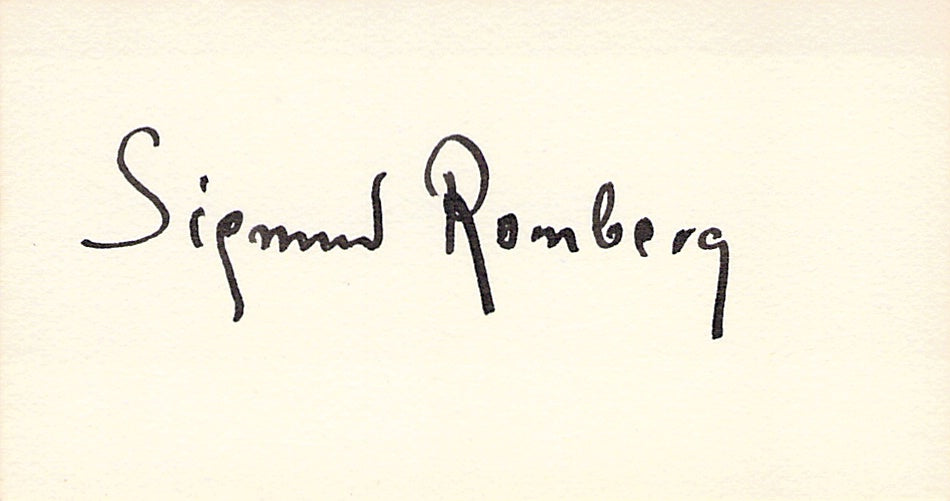 Sigmund Romberg